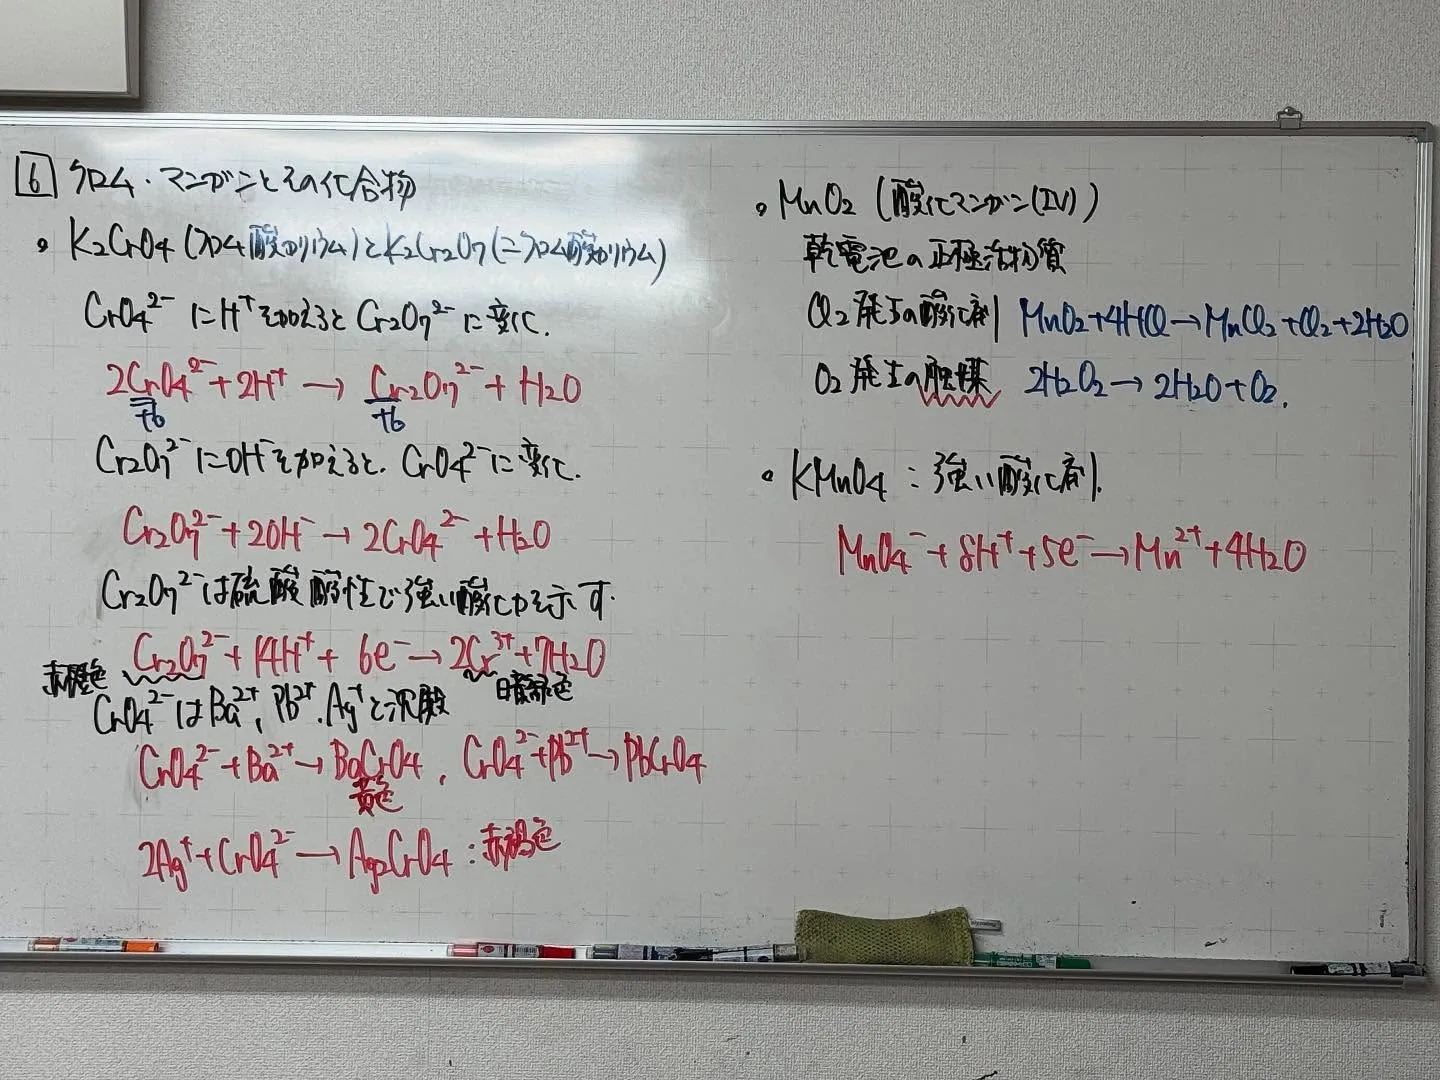 6 クロム・マンガンとその化合物
。K2CrO4(クロム酸カリウム)とK2Cr2O7(二クロム酸カリウム)
CrO4²⁻ にH⁺を加えるとCr2O7²⁻に変化.
2CrO4²⁻+2H⁺ → Cr2O7²⁻+H2O
+6 +6
Cr2O7²⁻にOH⁻を加えると、CrO4²⁻に変化.
Cr2O7²⁻+2OH⁻→2CrO4²⁻+H2O
Cr2O7²⁻は硫酸酸性で強い酸化力を示す.
Cr2O7²⁻+14H⁺+6e⁻→2Cr³⁺+7H2O
赤橙色 暗緑色
CrO4²⁻はBa²⁺, Pb²⁺, Ag⁺と沈殿
CrO4²⁻+Ba²⁺→BaCrO4, CrO4²⁻+Pb²⁺→PbCrO4
黄色
2Ag⁺+CrO4²⁻→Ag2CrO4:赤褐色
。MnO2(酸化マンガン(IV))
乾電池の正極活物質
Cl2発生の酸化剤 MnO2+4HCl→MnCl2+Cl2+2H2O
O2発生の触媒 2H2O2→2H2O+O2.
。KMnO4:強い酸化剤.
MnO4⁻+8H⁺+5e⁻→Mn²⁺+4H2O